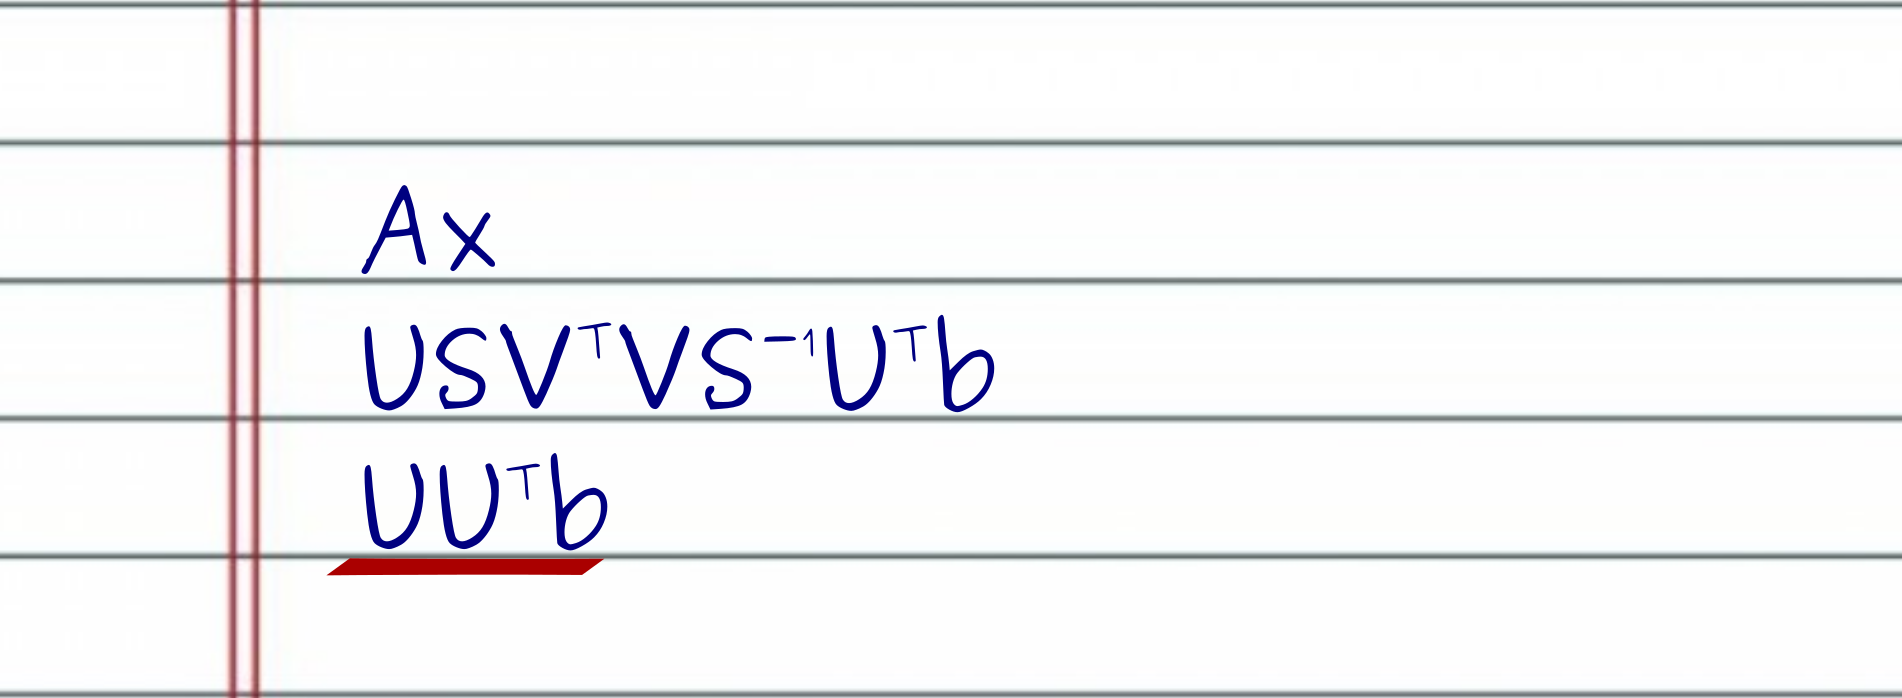 Ax
USVᵀVS⁻¹Uᵀb
UUᵀb